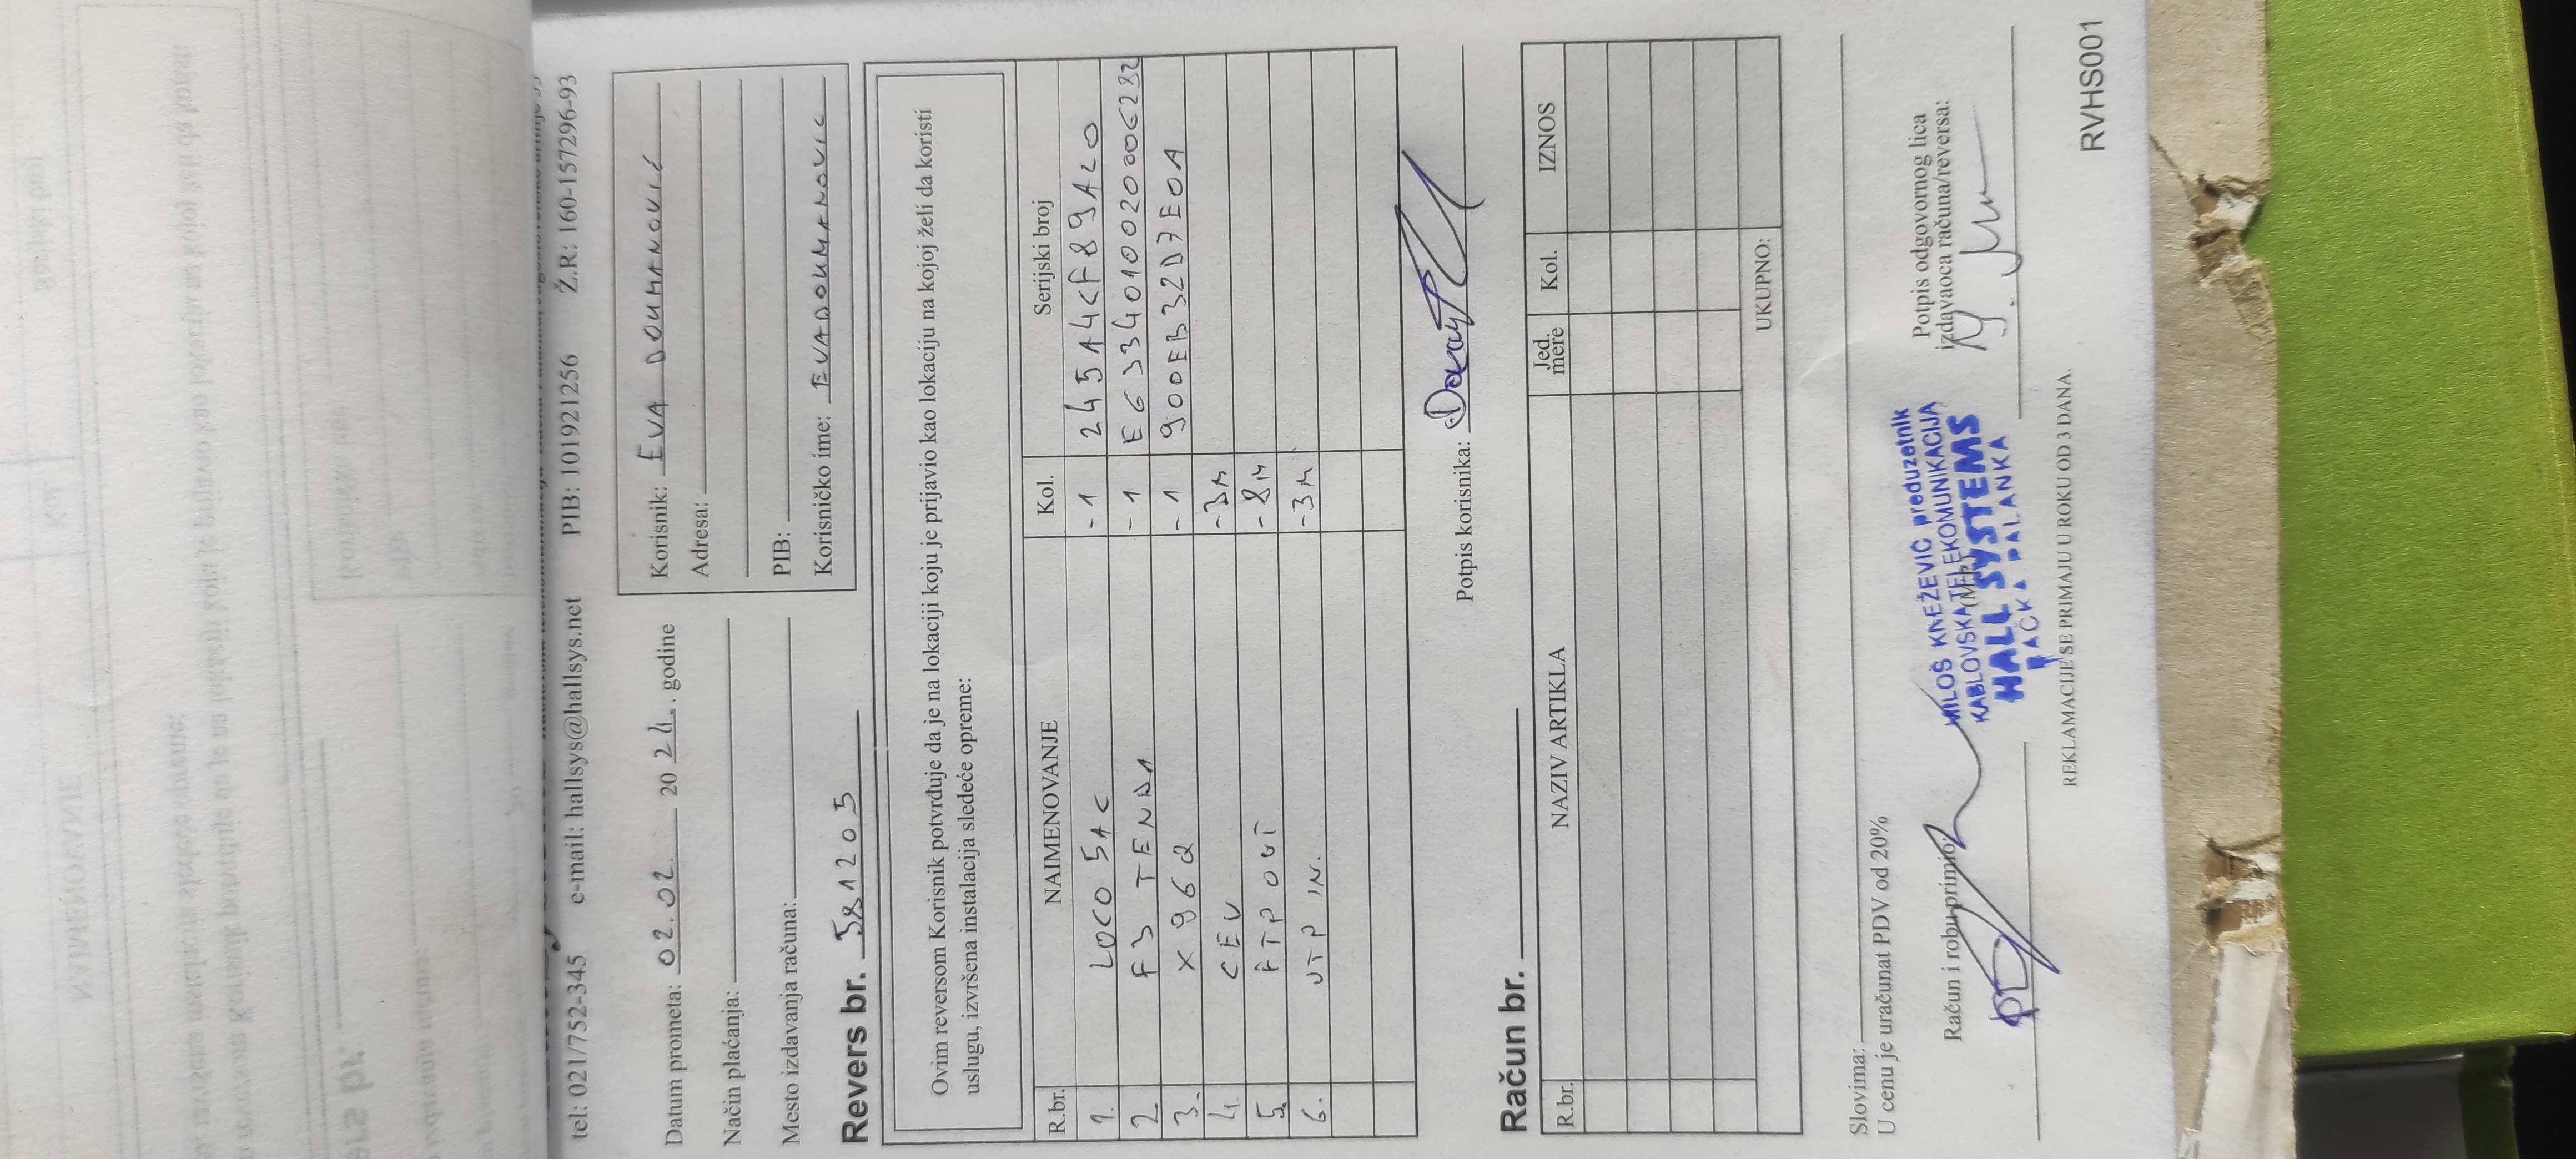 tel: 021/752-345 e-mail: hallsys@hallsys.net PIB: 101921256 Ž.R: 160-1572296-93
Datum prometa: 02.02. 2024. godine
Način plaćanja:
Mesto izdavanja računa:
Korisnik: EVA DOUMANOVIĆ
Adresa:
PIB:
Korisničko ime: EVADOUMANOVIC
Revers br. 581205
Ovim reversom Korisnik potvrđuje da je na lokaciji koju je prijavio kao lokaciju na kojoj želi da koristi
uslugu, izvršena instalacija sledeće opreme:
R.br. NAIMENOVANJE Kol. Serijski broj
1. LOCO 5AC -1 245A4CF89A20
2. F3 TENDA -1 E6334010020006232
3. X96Q -1 900EB32D7E0A
4. CEV -3M
5. FTP OUT -8M
6. UTP IN. -3M
Potpis korisnika:
Račun br.
R.br. NAZIV ARTIKLA Jed. mere Kol. IZNOS
UKUPNO:
Slovima:
U cenu je uračunat PDV od 20%
Račun i robu primio:
MILOŠ KNEŽEVIĆ preduzetnik
KABLOVSKA TELEKOMUNIKACIJA
HALL SYSTEMS
BAČKA PALANKA
Potpis odgovornog lica
izdavaoca računa/reversa:
REKLAMACIJE SE PRIMAJU U ROKU OD 3 DANA.
RVHS001